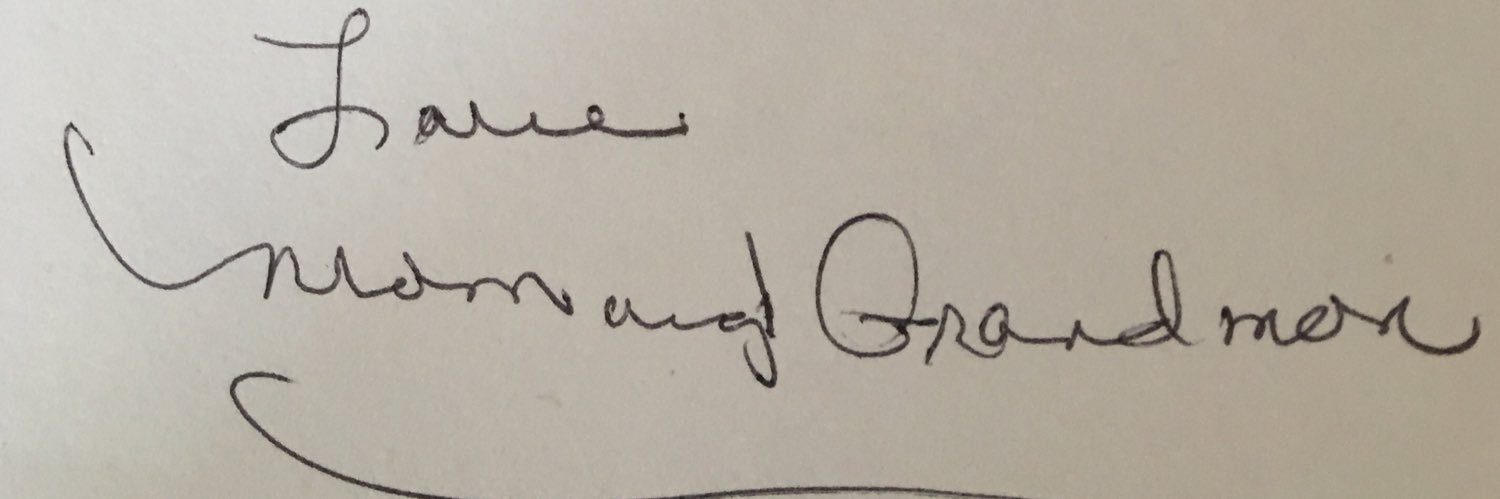 Love
Mom and Grandmom